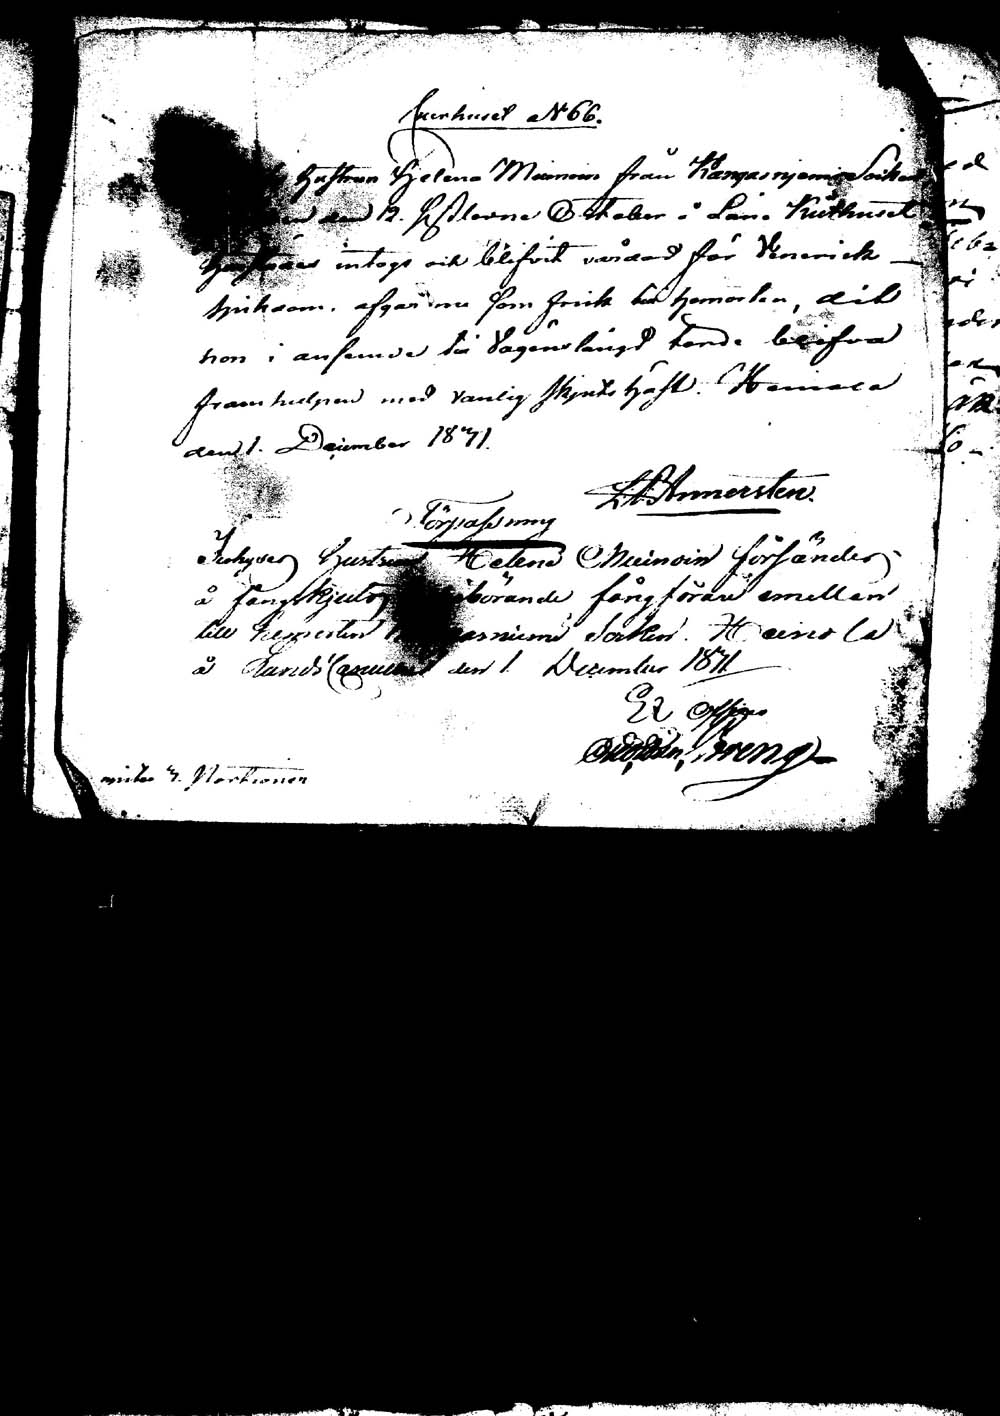 Kurhuset No 66.
Hustrun Helena Muinoin från Kangasniemi Socken
den 12. Sistledne October i Läne Kurhuset
intogs och blifvit vårdad för Venerisk
sjukdom. afgår nu som frisk till hemorten, dit
hon i anseende till vägens längd torde blifva
framhulpen med vanlig skjuts häst. Heinola
den 1. December 1871.
Förpassning
Inhyses Hustrun Helena Muinoin försändes
å fångskjuts fångförare emellan
till hemorten Socken. Heinola
å Landscancelliet den 1 December 1871
Ex officio
Portioner